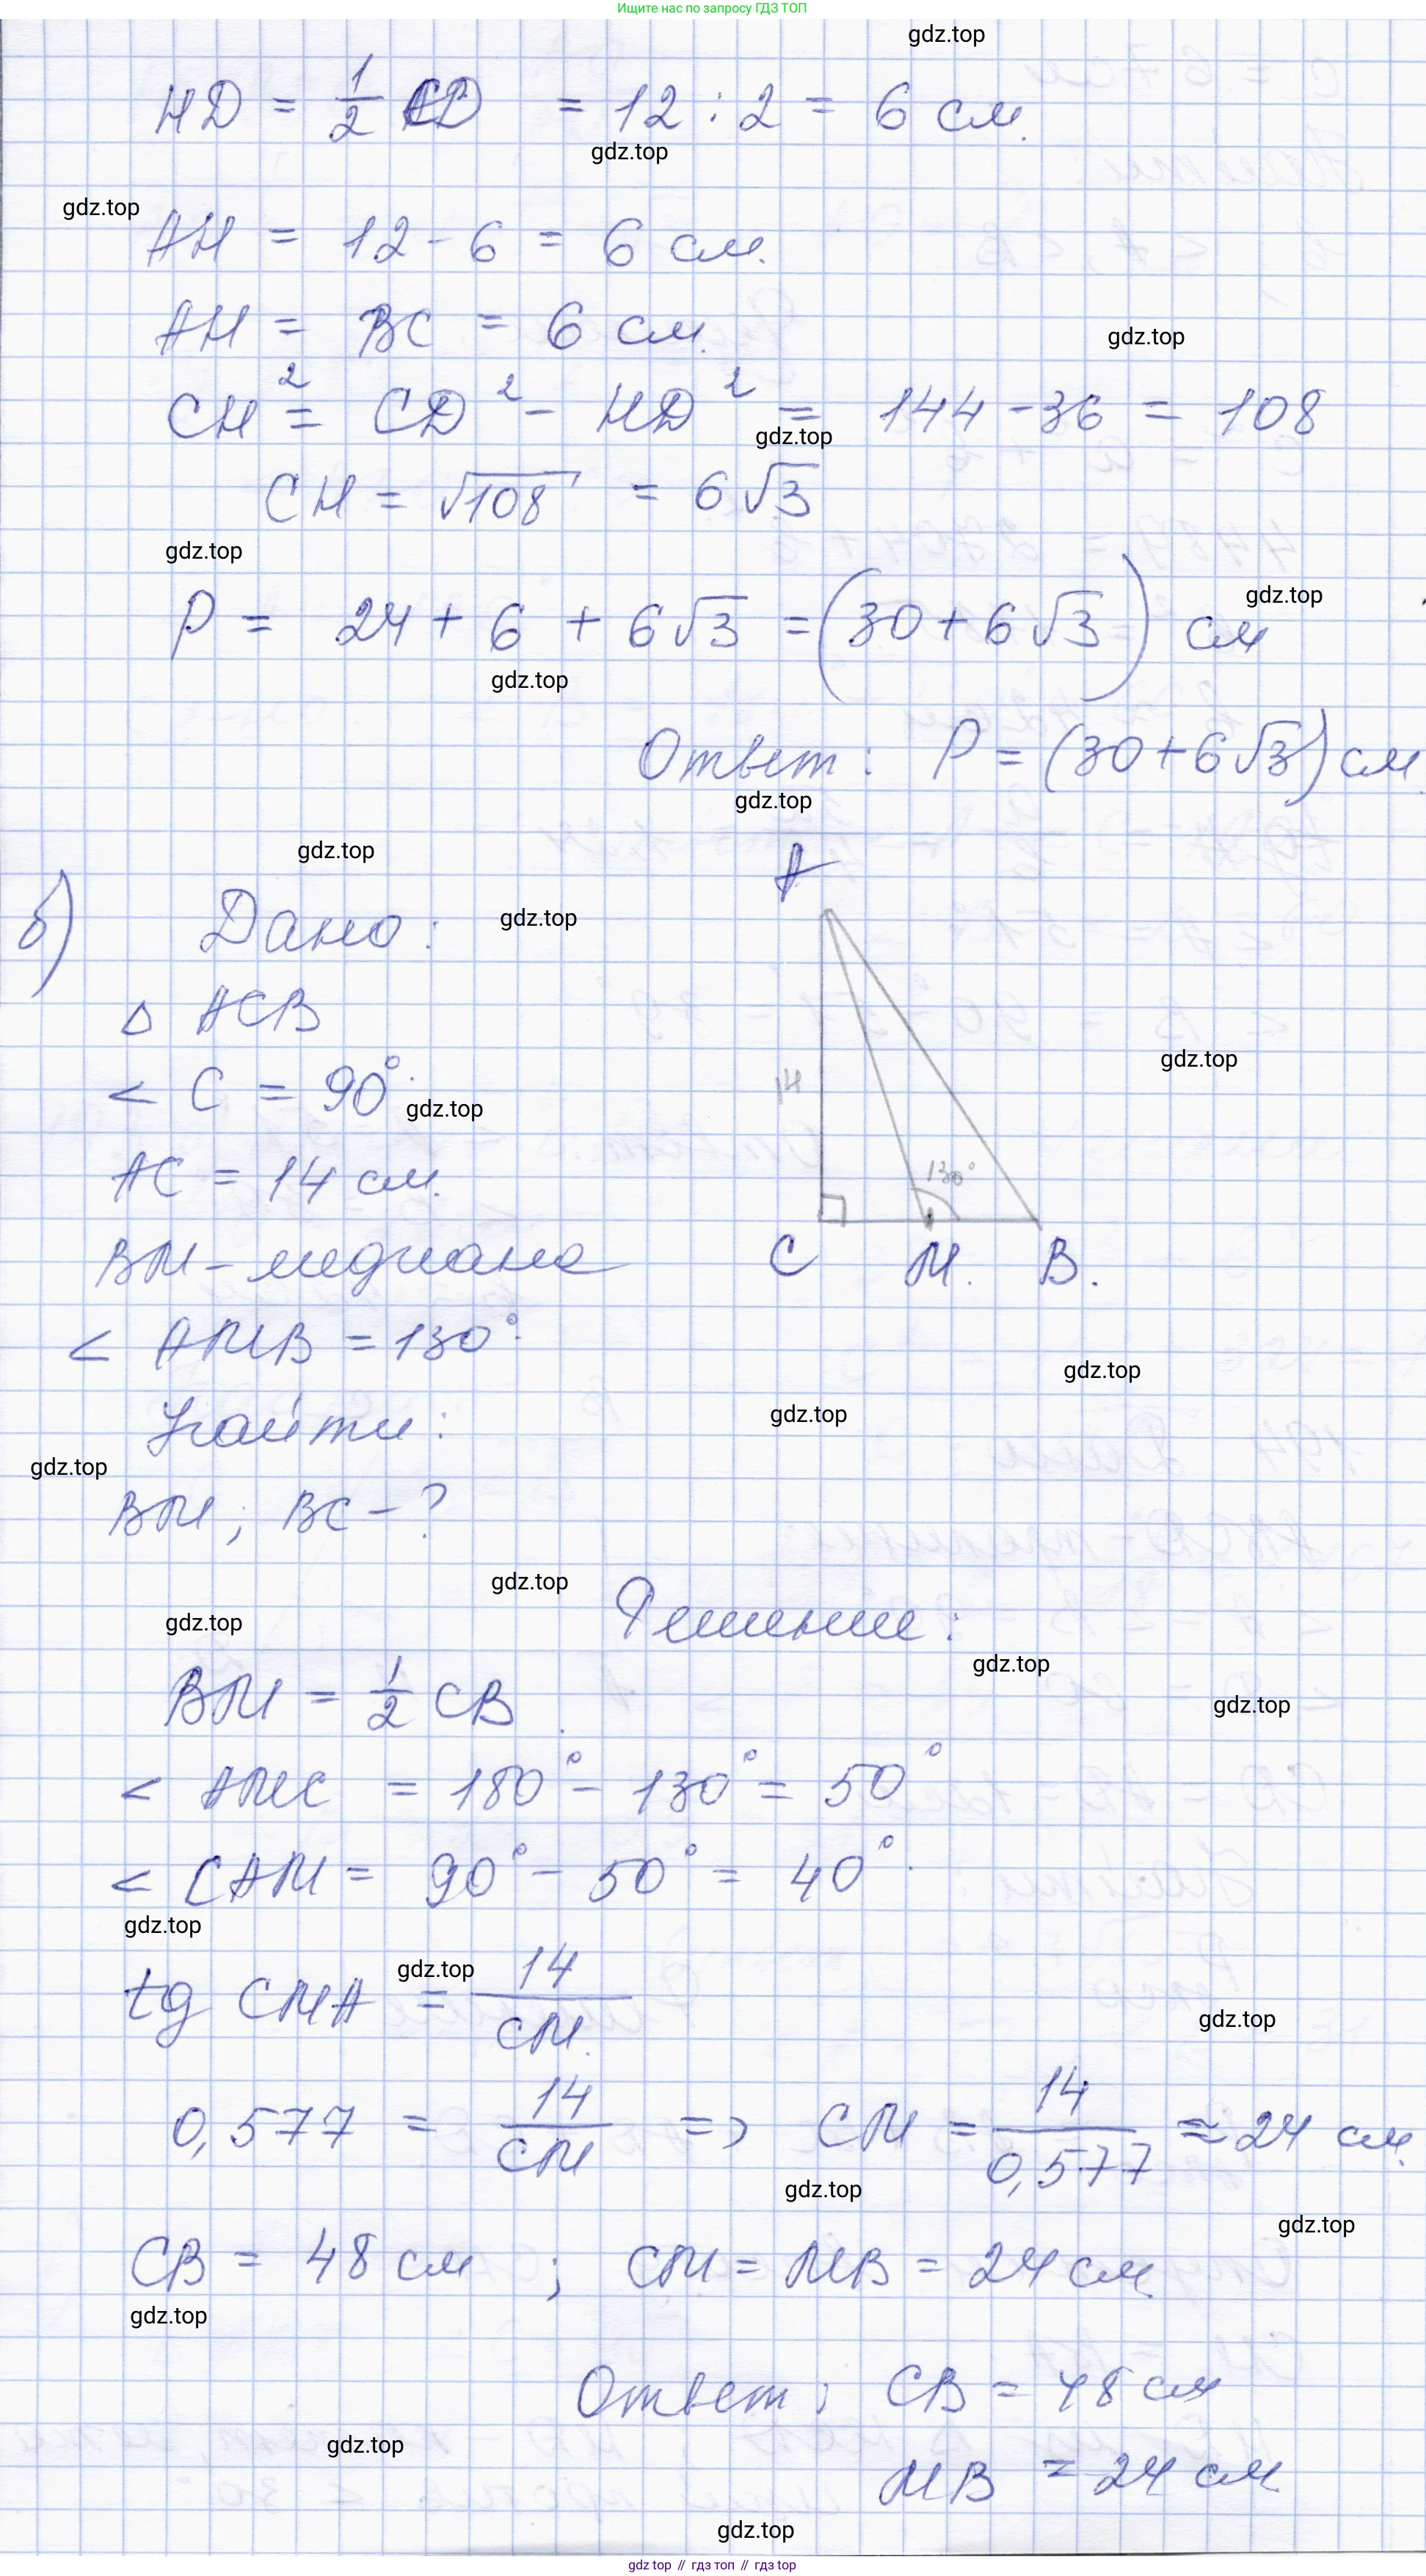 Ищите нас по запросу ГДЗ ТОП
gdz.top
HD = 1/2 CD = 12 : 2 = 6 см.
gdz.top
gdz.top
AH = 12 - 6 = 6 см.
AH = BC = 6 см.
gdz.top
CH² = CD² - HD² = 144 - 36 = 108
gdz.top
CH = √108 = 6√3
gdz.top
P = 24 + 6 + 6√3 = (30 + 6√3) см
gdz.top
gdz.top
Ответ: P = (30 + 6√3) см.
gdz.top
gdz.top
A
б) Дано:
gdz.top
△ ACB
< C = 90°.
gdz.top
gdz.top
14
AC = 14 см.
130°
BM - медиана
C M. B.
< AMB = 130°.
gdz.top
Найти:
gdz.top
gdz.top
BM; BC - ?
gdz.top
Решение:
gdz.top
gdz.top
BM = 1/2 CB.
gdz.top
< AMC = 180° - 130° = 50°
< CAM = 90° - 50° = 40°.
gdz.top
gdz.top
tg CMA = 14/CM.
gdz.top
0,577 = 14/CM => CM = 14/0,577 ≈ 24 см.
gdz.top
gdz.top
CB = 48 см ; CM = MB = 24 см.
gdz.top
Ответ; CB = 48 см
gdz.top
MB = 24 см
gdz.top
gdz top // гдз топ // gdz top